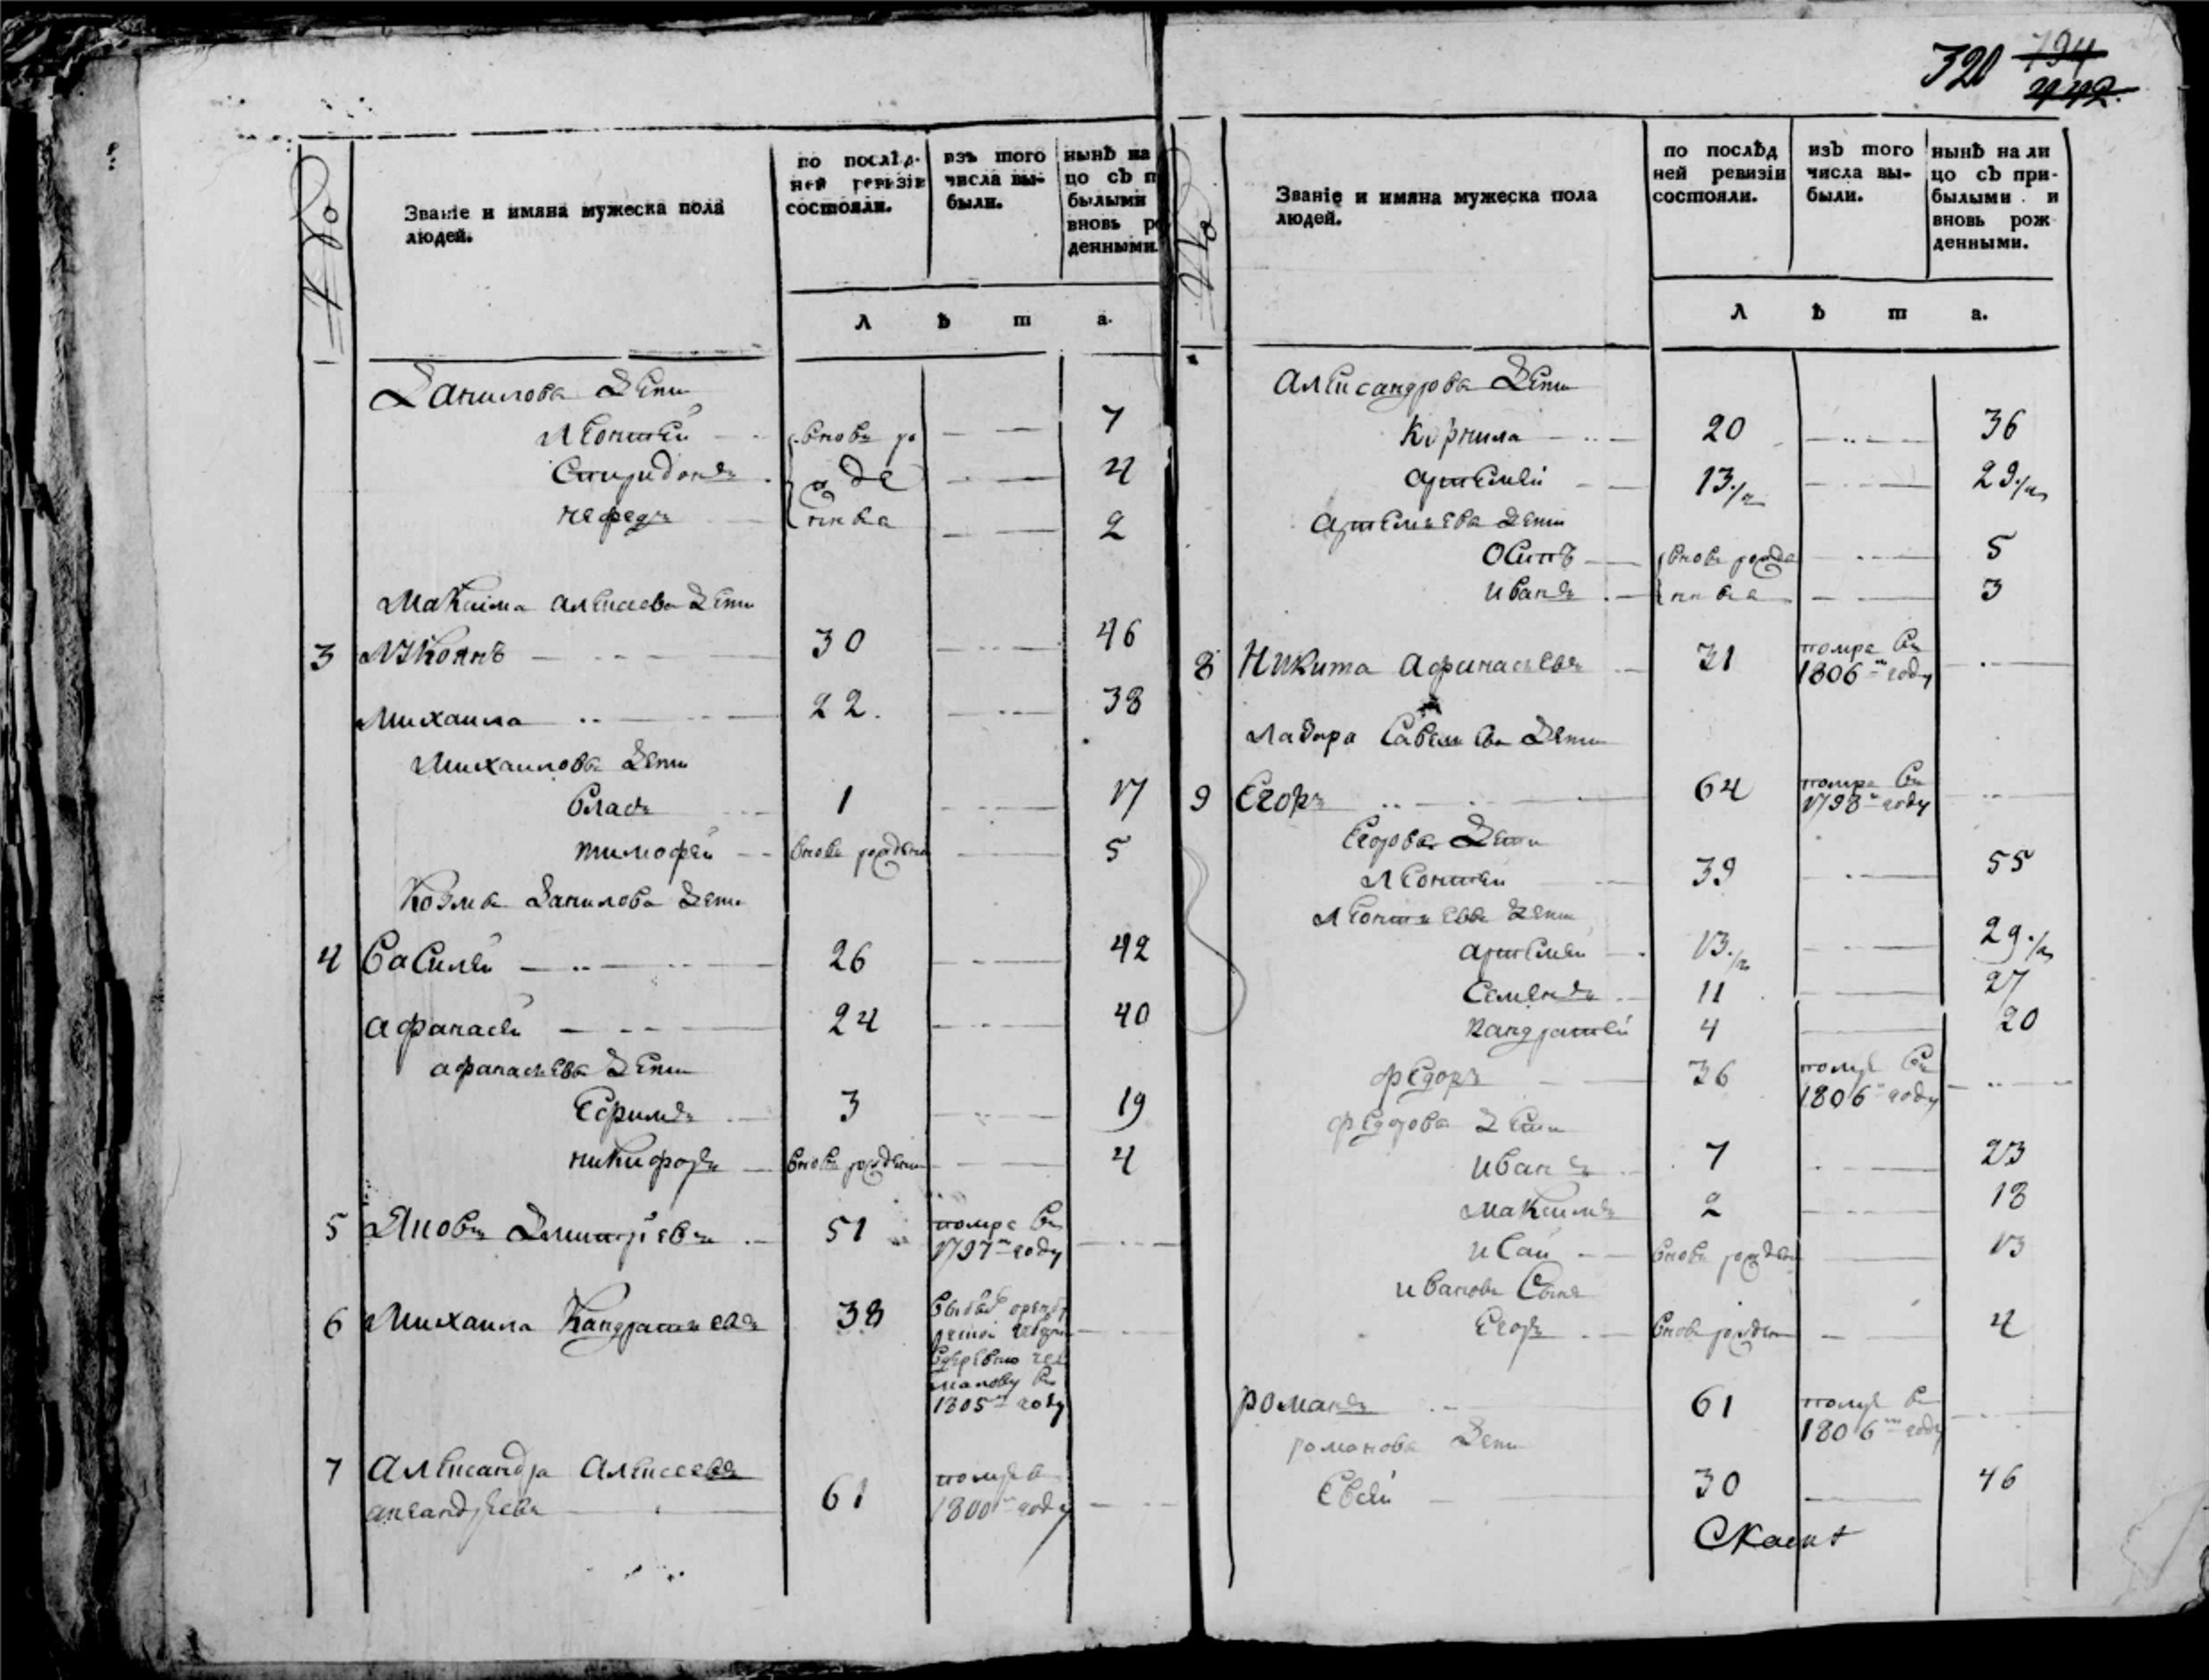 320 794
442.
№
Званіе и имяна мужеска пола людей.
по послѣдней ревизіи состояли.
изъ того числа выбыли.
нынѣ на
цо съ п
былыми
вновь ро
денными.
л ѣ т а.
Данилова дети
Леонтей вновь ро 7
Спиридонъ жде 4
нефедъ ннва 2
Максима алексеева дети
3 30 46
Михаила 22. 38
Михаилова дети
Власъ 1 17
тимофей вновь рожденн 5
Козма Данилова дети
4 Василей 26 42
афанасей 24 40
афанасьева дети
Ефимъ 3 19
никифоръ вновь рожденн 4
5 Яковъ Дмитріевъ 51 помре въ 1797м году
6 Михаила Кандратьевъ 38 1805м году
7 Александра Алексеевъ
61 помре в 1800м году
№
Званіе и имяна мужеска пола людей.
по послѣдней ревизіи состояли.
изъ того числа выбыли.
нынѣ на лицо съ прибылыми и вновь рожденными.
л ѣ т а.
александрова дети
Корнила 20 36
артемей 13./2 29./2
артемьева дети
Осипъ вновь рожде 5
иванъ ннва 3
8 Никита афанасьевъ 31 помре въ 1806м году
Савельева дети
9 Егоръ 64 помре въ 1798м году
Егорова дети
Леонтей 39 55
Леонтьева дети
артемей 13./2 29./2
Семенъ 11 27
кандратей 4 20
федоръ 36 помре въ 1806м году
федорова дети
иванъ 7 23
максимъ 2 18
исай вновь рожден 13
иванова сынъ
Егоръ вновь рожден 4
романъ 61 помре в 1806м году
романова дети
Евсей 30 46